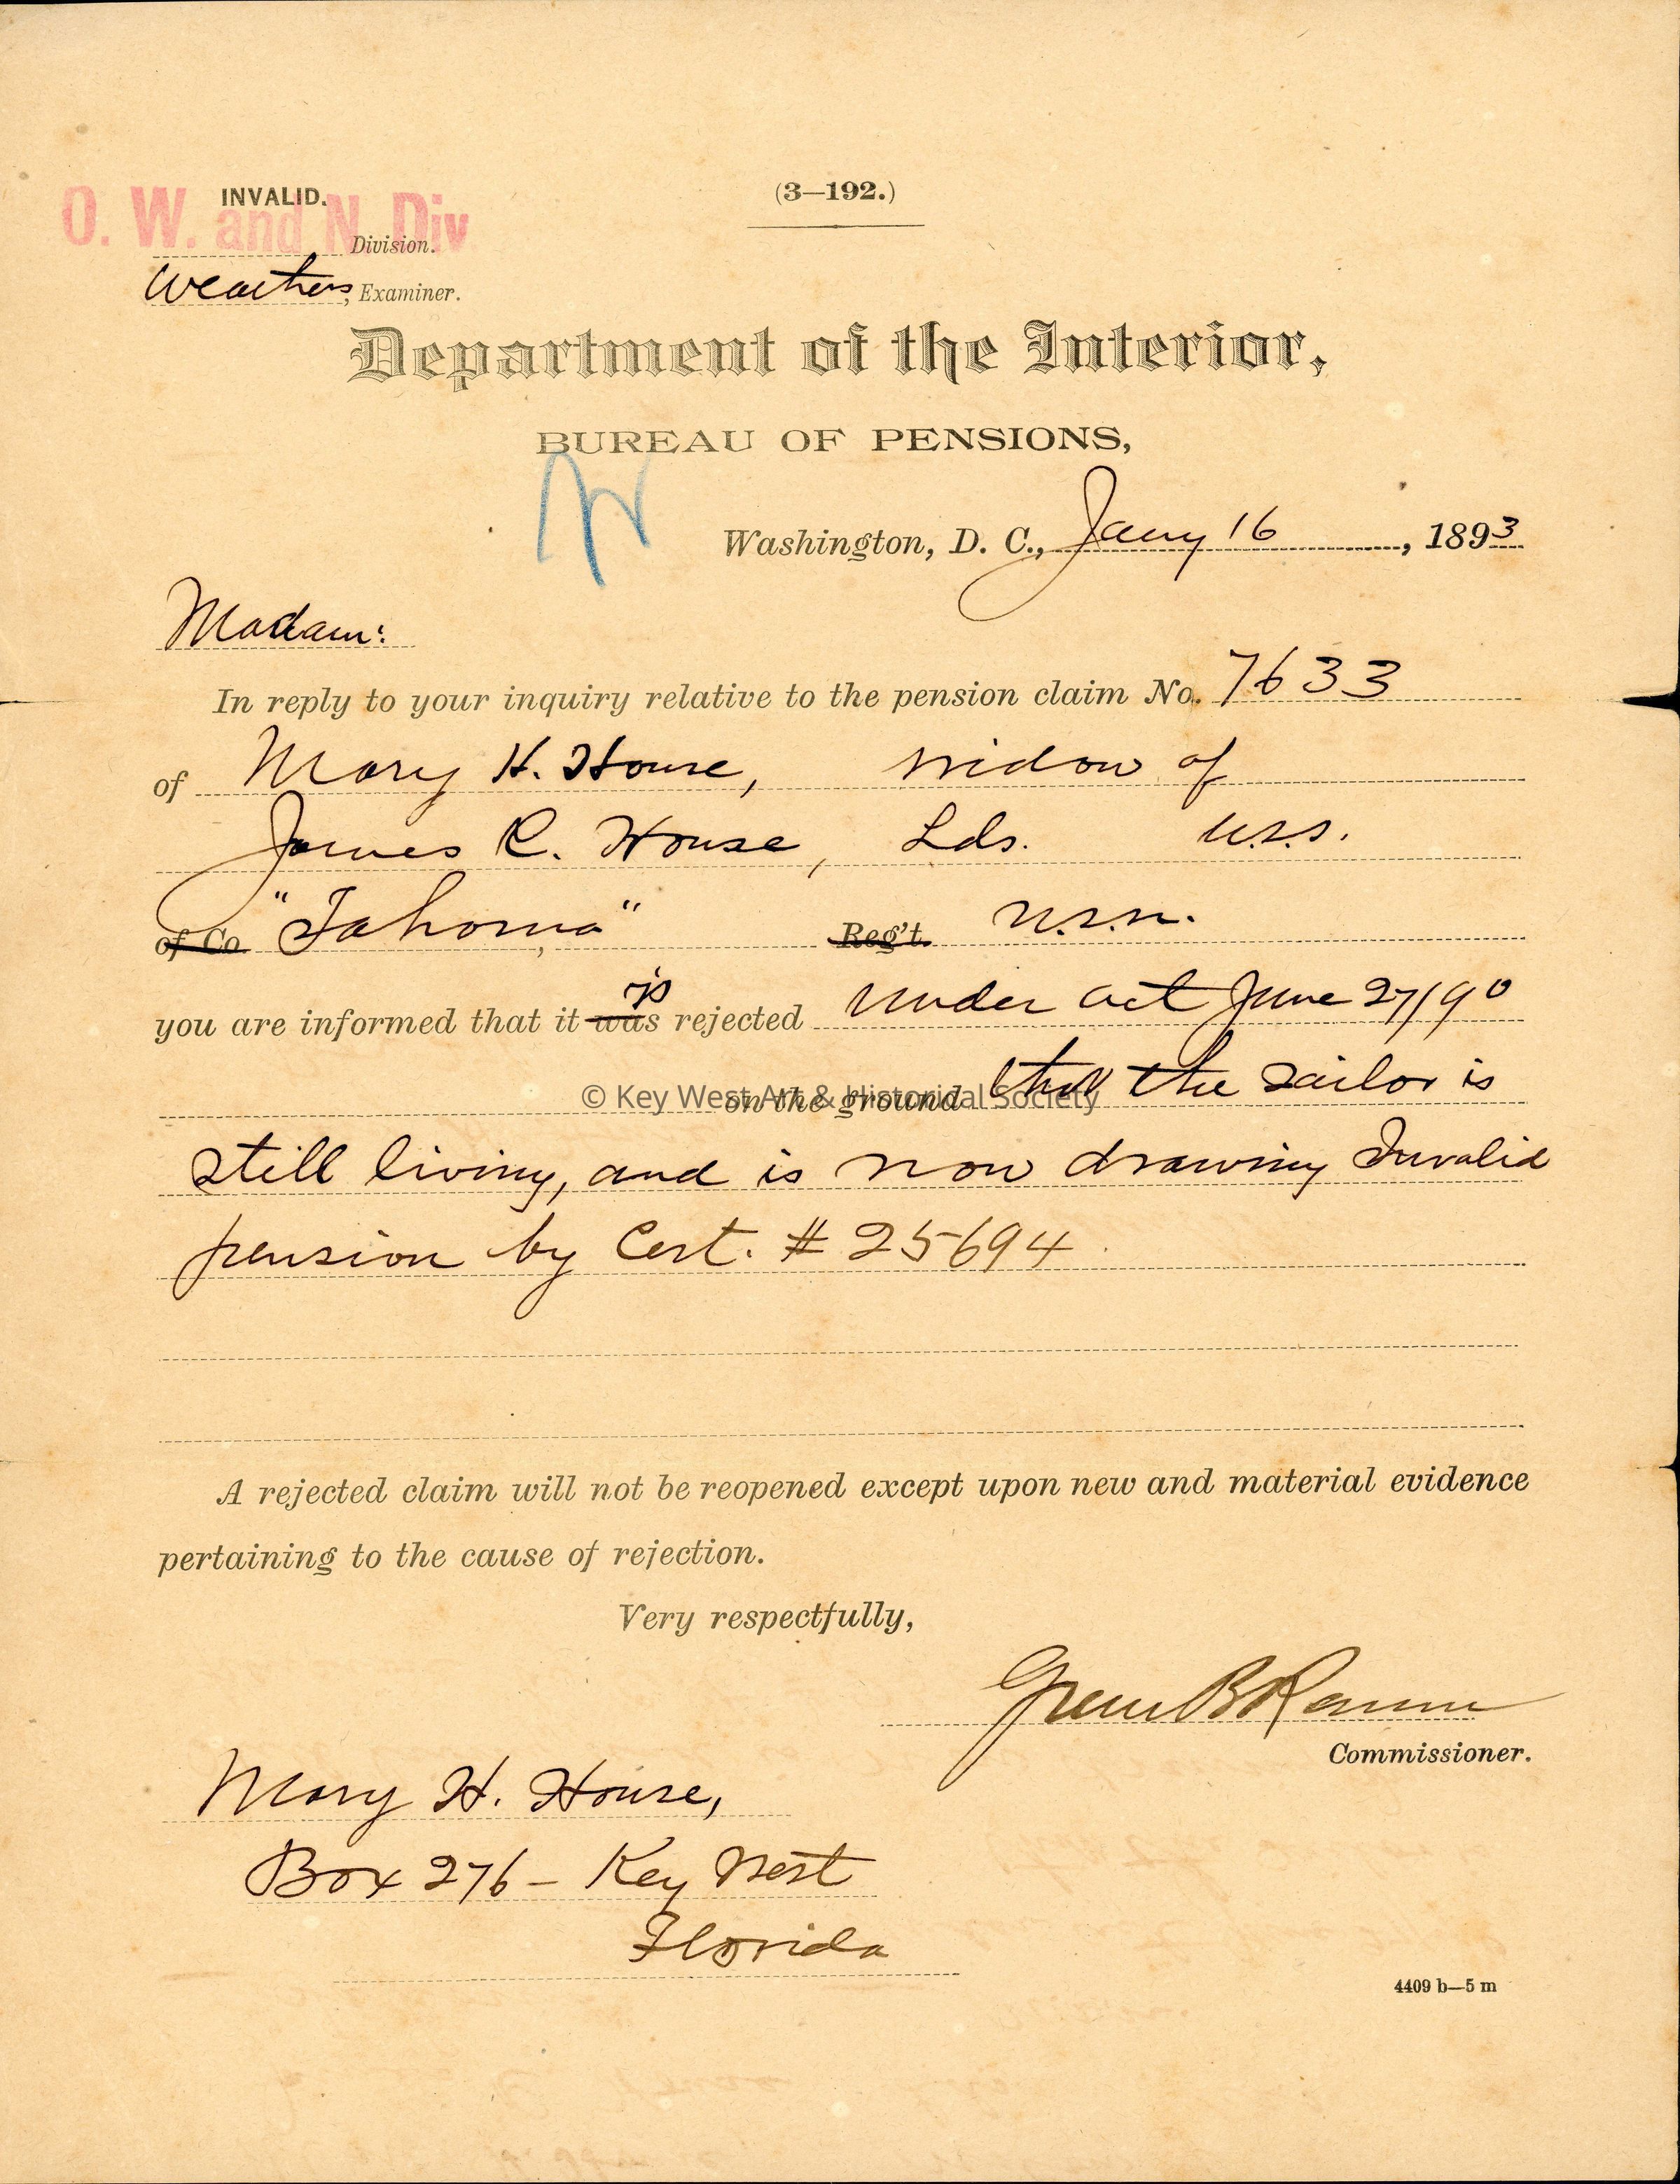 (3—192.)
O. W. and N. Div
INVALID.
Division.
Weathers, Examiner.
Department of the Interior,
BUREAU OF PENSIONS,
W
Washington, D. C., Jany 16, 1893
Madam:
In reply to your inquiry relative to the pension claim No. 7633
of Mary H. House, widow of
James R. House, Lds. U.S.S.
of Co "Tahoma" Reg't. U.S.N.
is
you are informed that it was rejected under act June 27/90
on the ground that the sailor is
© Key West Art & Historical Society
still living, and is now drawing Invalid
pension by Cert. # 25694
A rejected claim will not be reopened except upon new and material evidence
pertaining to the cause of rejection.
Very respectfully,
Green B Raum
Commissioner.
Mary H. House,
Box 276 - Key West
Florida
4409 b—5 m